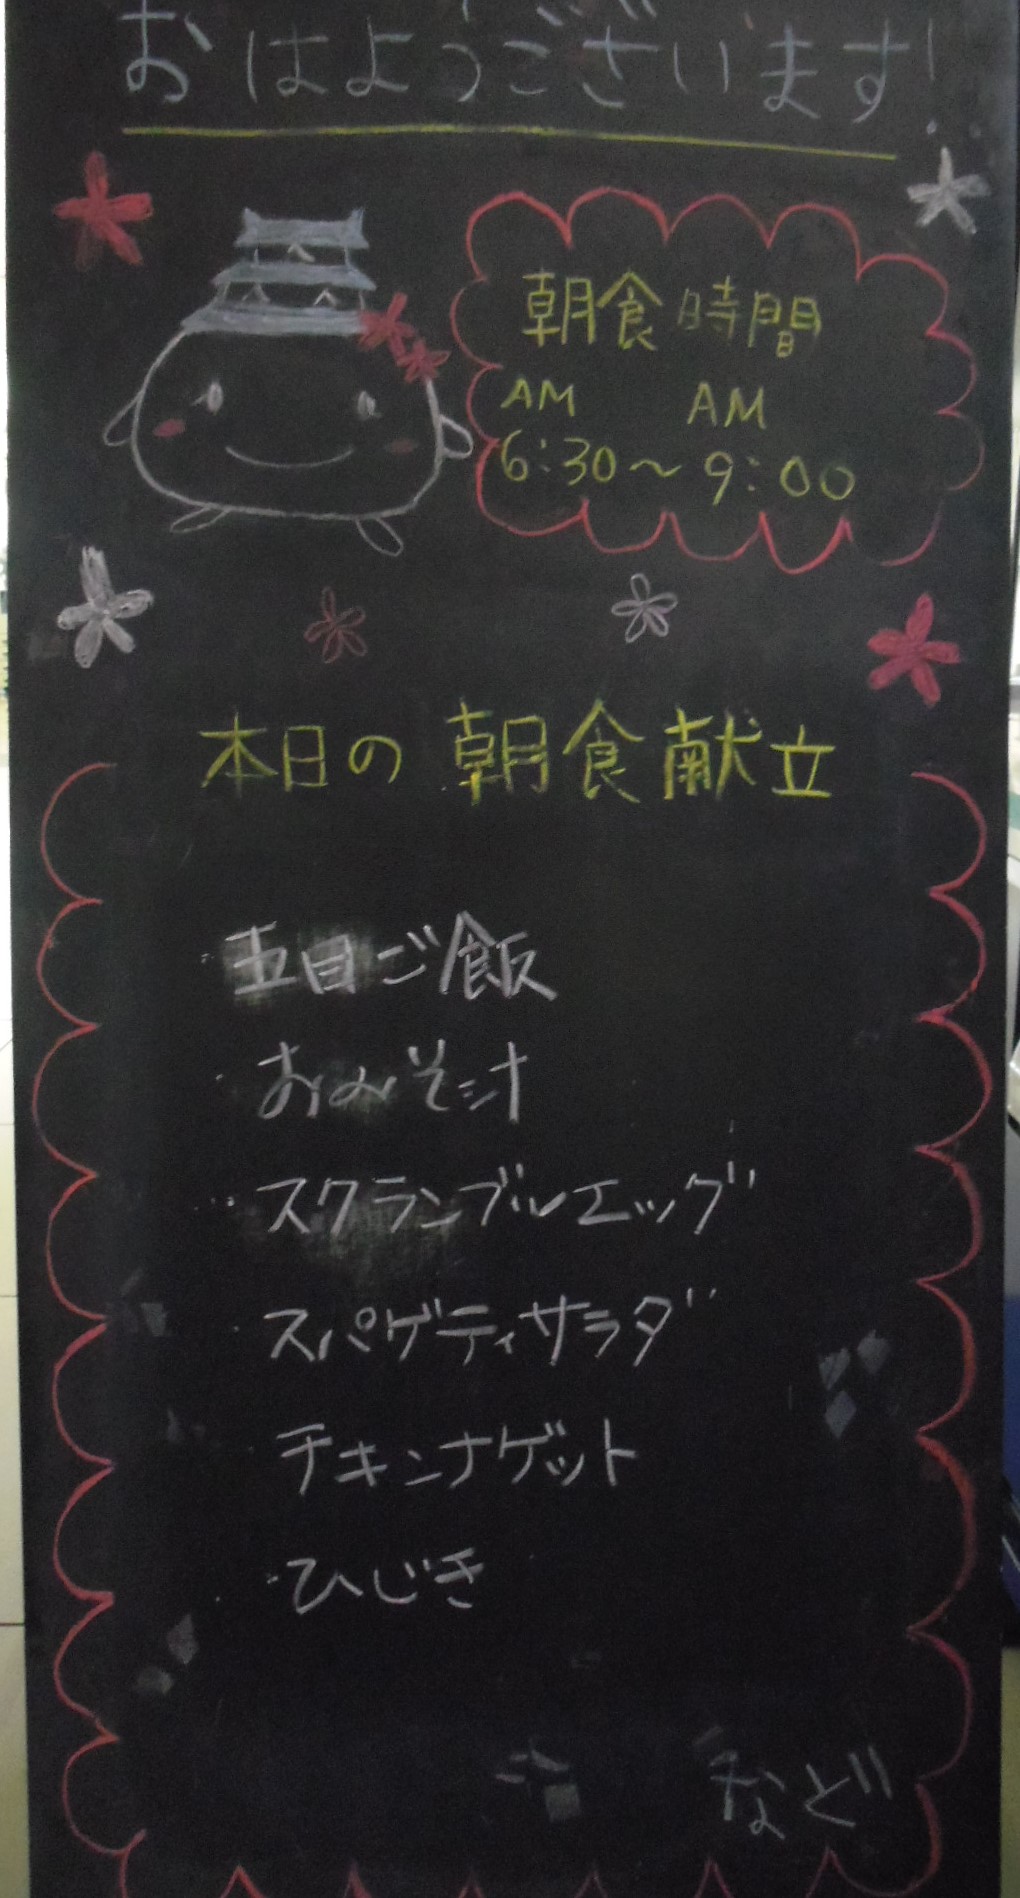 おはようございます!
朝食時間
AM AM
6:30～9:00
本日の朝食献立
・五目ご飯
・おみそ汁
・スクランブルエッグ
・スパゲティサラダ
・チキンナゲット
・ひじき
など